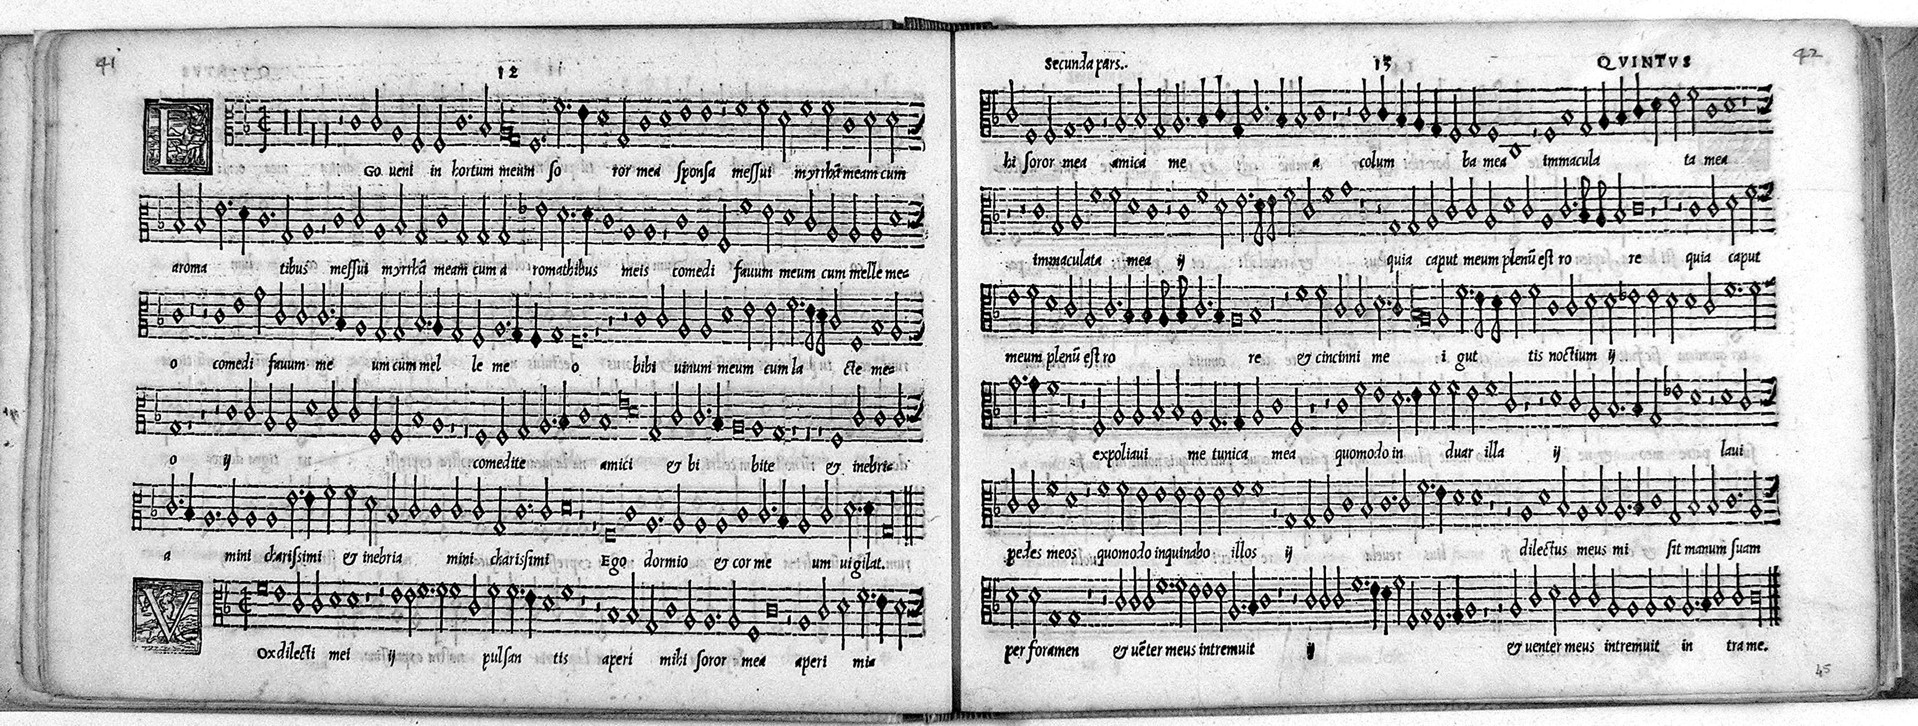 41
12
EGO ueni in hortum meum so ror mea sponsa messui myrrhã meam cum
aroma tibus messui myrrhã meam cum a romathibus meis comedi fauum meum cum melle me=
o comedi fauum me um cum mel le me o bibi uinum meum cum la cte me=
o ij comedite amici & bi bite & inebria=
a mini charissimi & inebria mini charissimi Ego dormio & cor me um uigilat.
VOx dilecti mei ij pulsan tis aperi mihi soror mea aperi mi=
Secunda pars.
13
QVINTVS
42
hi soror mea amica me a colum ba mea immacula ta mea
immaculata mea ij quia caput meum plenũ est ro re quia caput
meum plenũ est ro re & cincinni me i gut tis noctium ij
expoliaui me tunica mea quomodo in duar illa ij laui
pedes meos quomodo inquinabo illos ij dilectus meus mi sit manum suam
per foramen & uẽter meus intremuit ij & uenter meus intremuit in tra me.
45